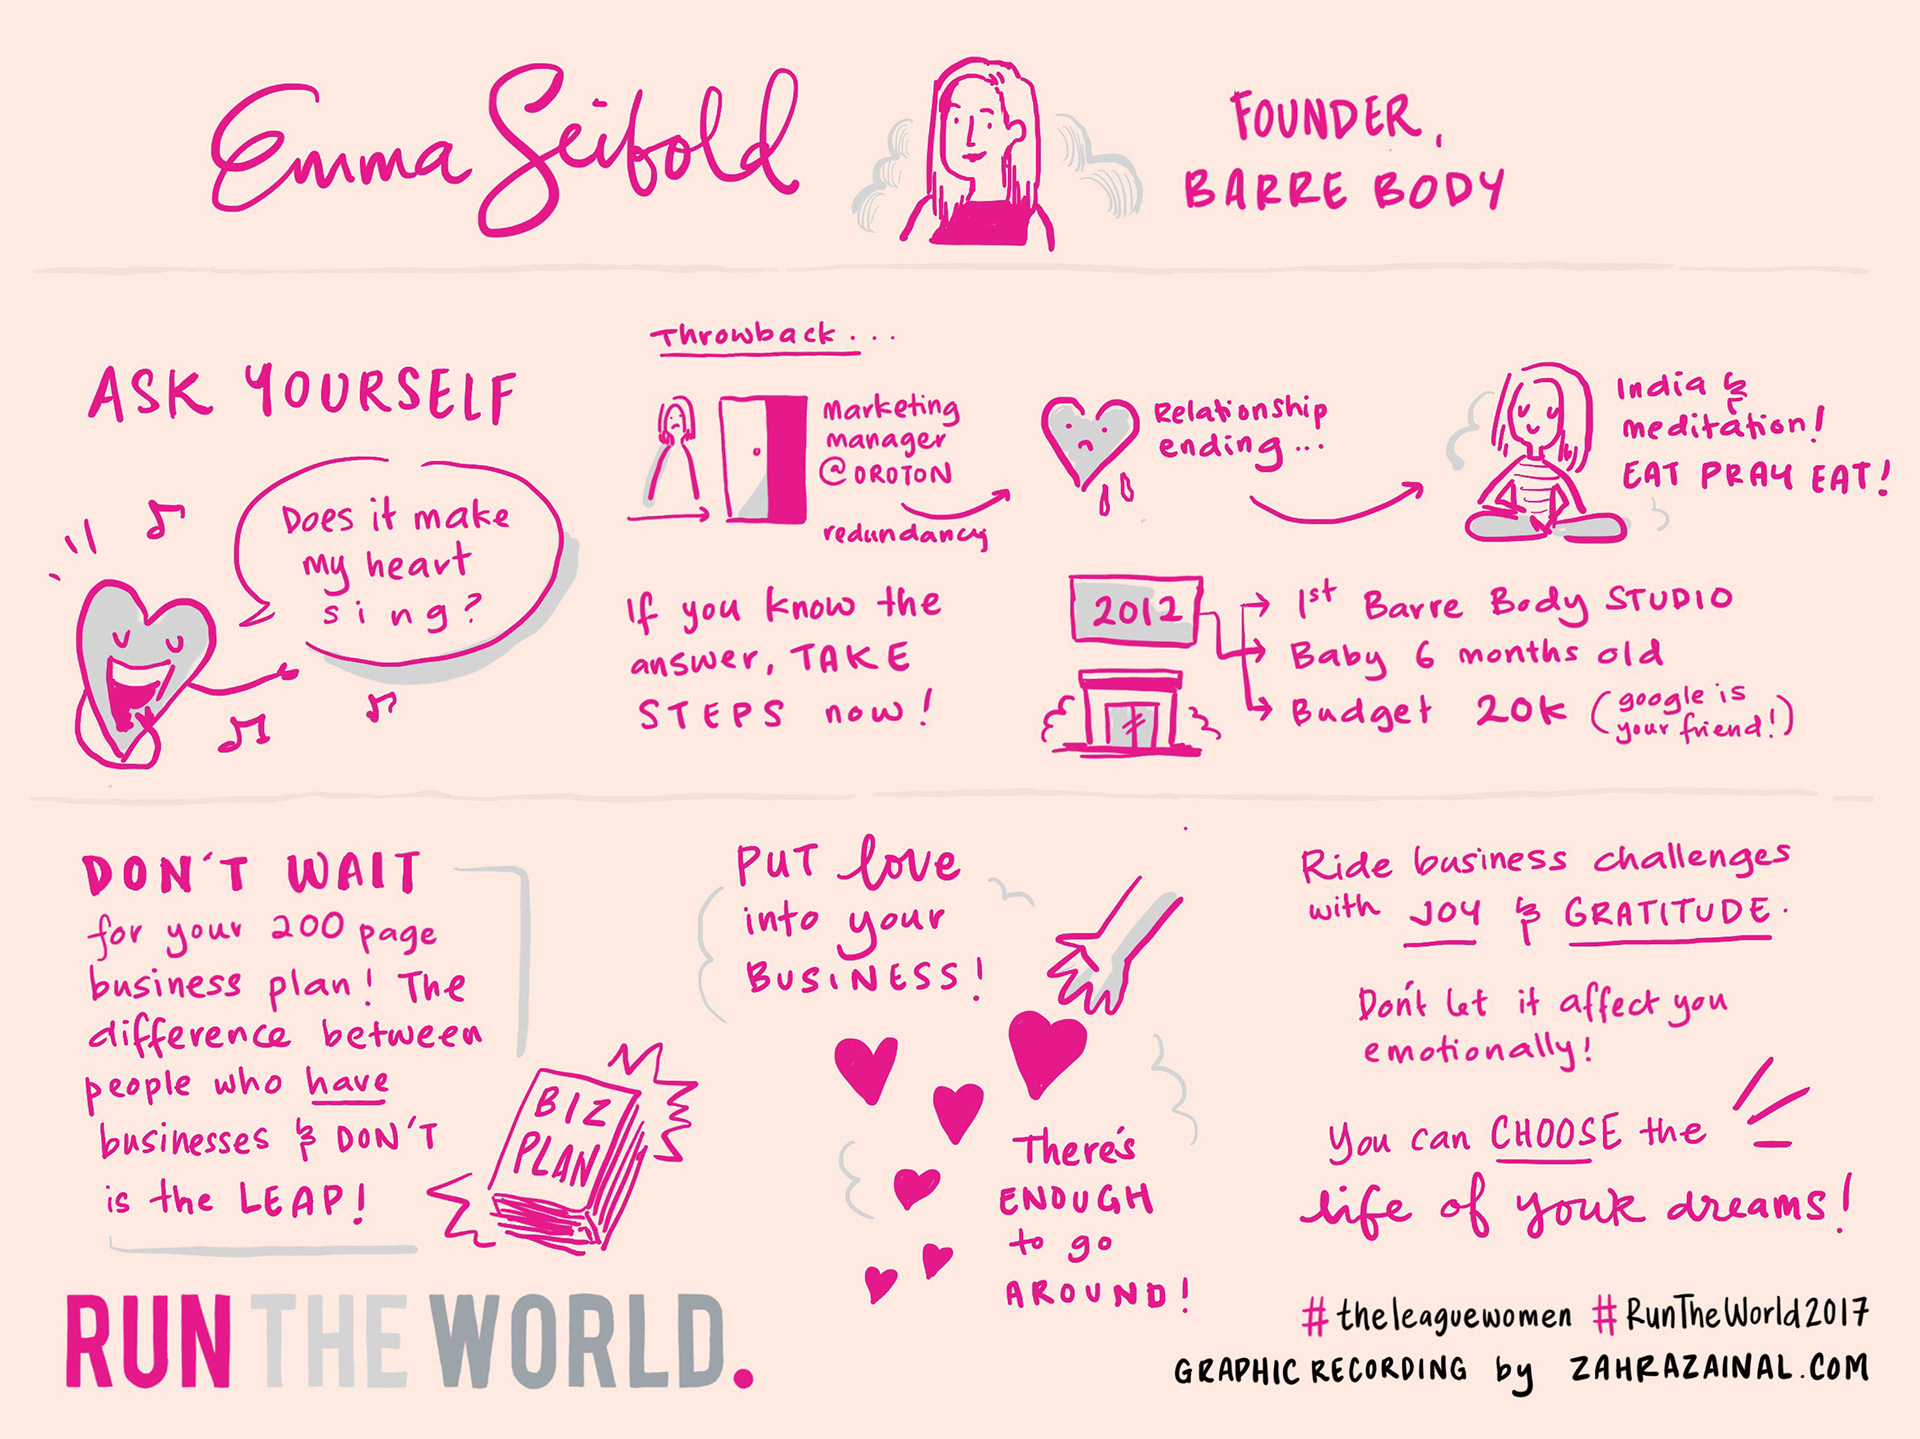 Emma Seibold
FOUNDER,
BARRE BODY
ASK YOURSELF
Does it make
my heart
sing?
Throwback...
marketing
manager
@OROTON
redundancy
Relationship
ending...
India &
meditation!
EAT PRAY EAT!
If you know the
answer, TAKE
STEPS now!
2012
1st Barre Body STUDIO
Baby 6 months old
Budget 20K (google is
your friend!)
DON'T WAIT
for your 200 page
business plan! The
difference between
people who have
businesses & DON'T
is the LEAP!
BIZ
PLAN
PUT love
into your
BUSINESS!
There's
ENOUGH
to go
AROUND!
Ride business challenges
with JOY & GRATITUDE.
Don't let it affect you
emotionally!
You can CHOOSE the
life of your dreams!
RUN THE WORLD.
#theleaguewomen #RunTheWorld2017
GRAPHIC RECORDING by ZAHRAZAINAL.COM